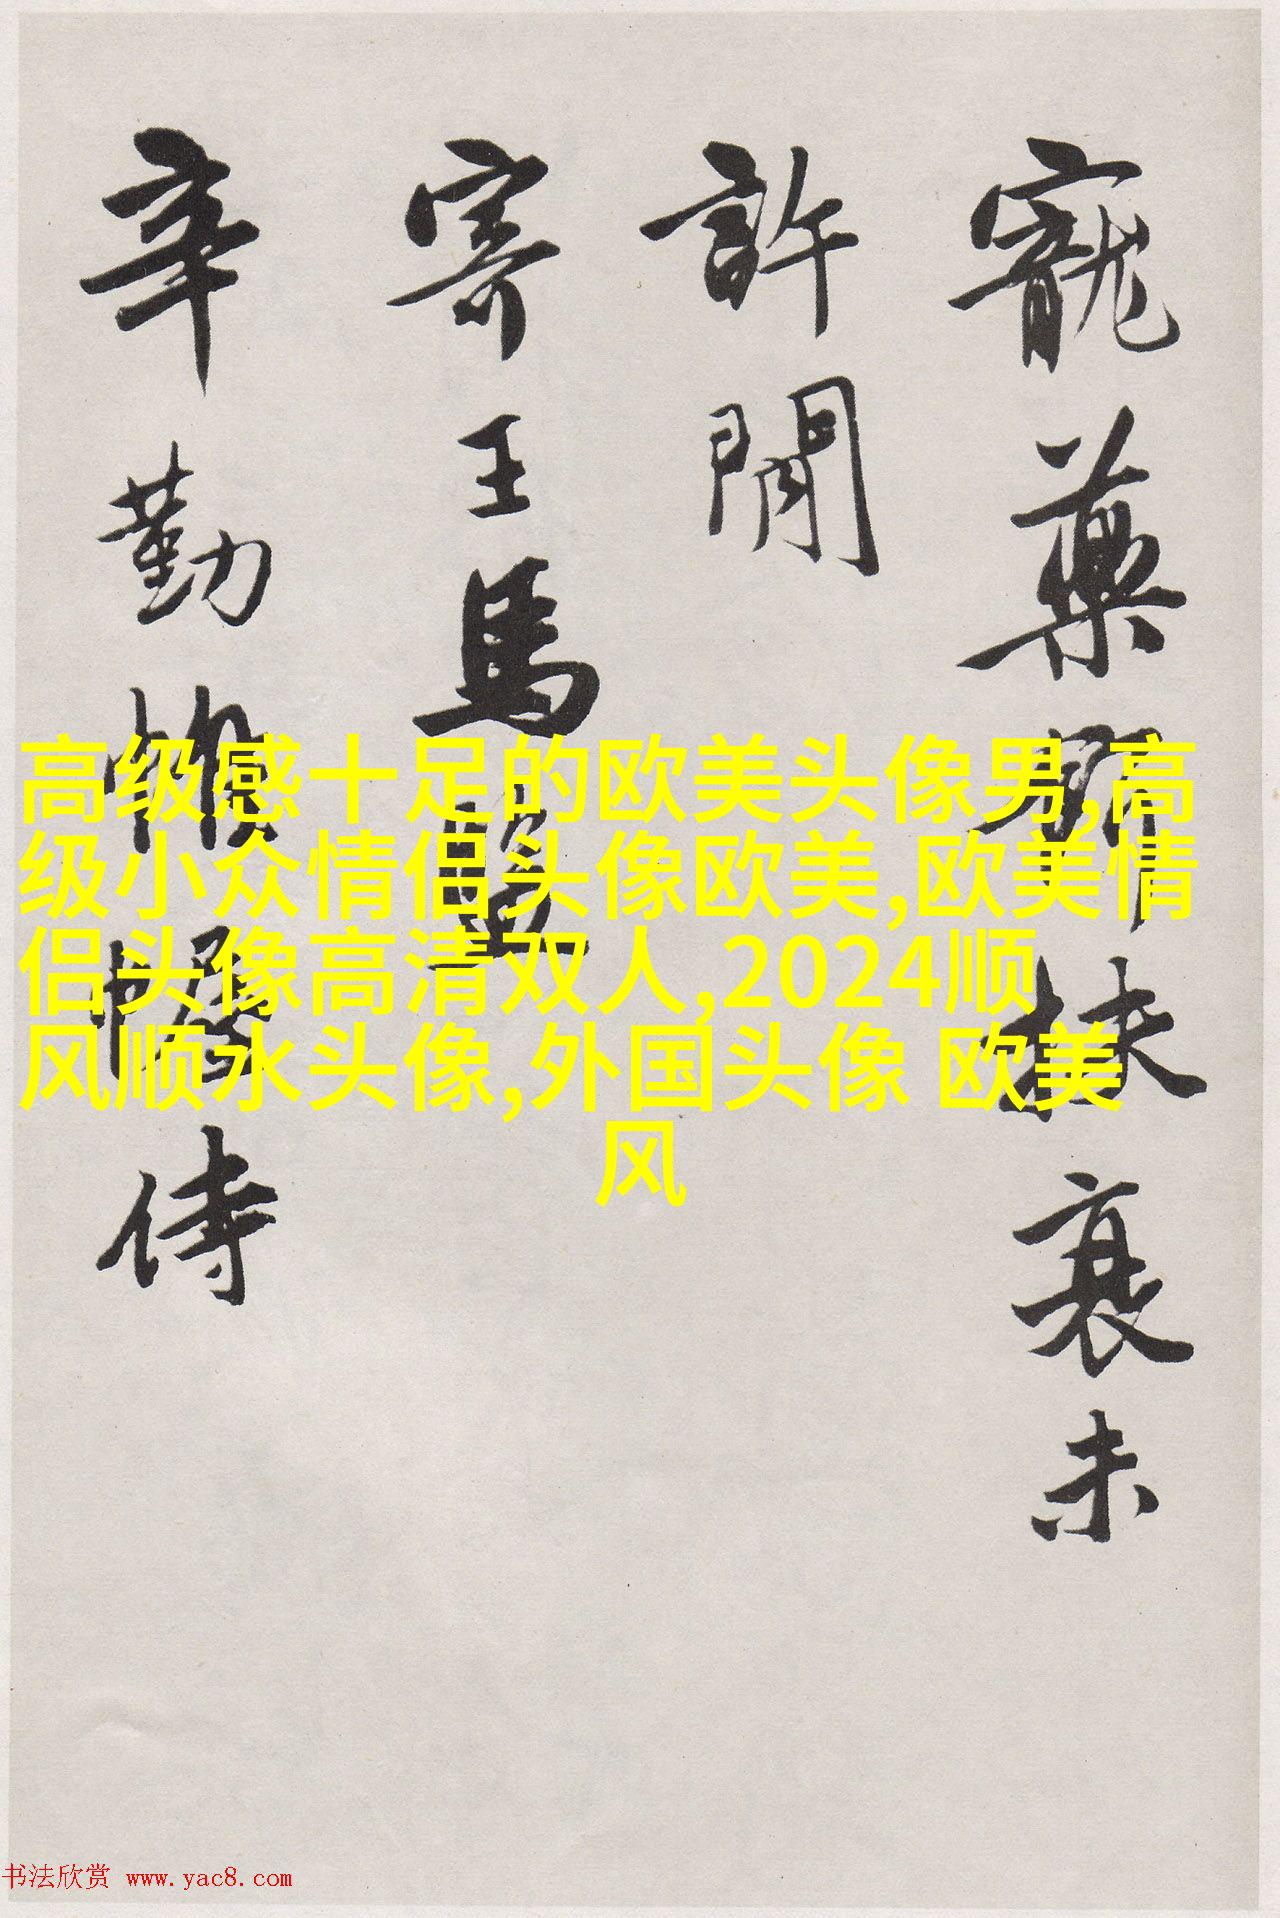 寵藥時扶衰未
許閒
寄王馬墨
辛勤惟幄侍
高级感十足的欧美头像男,高
级小众情侣头像欧美,欧美情
侣头像高清双人,2024顺
风顺水头像,外国头像 欧美
风
书法欣赏 www.yac8.com